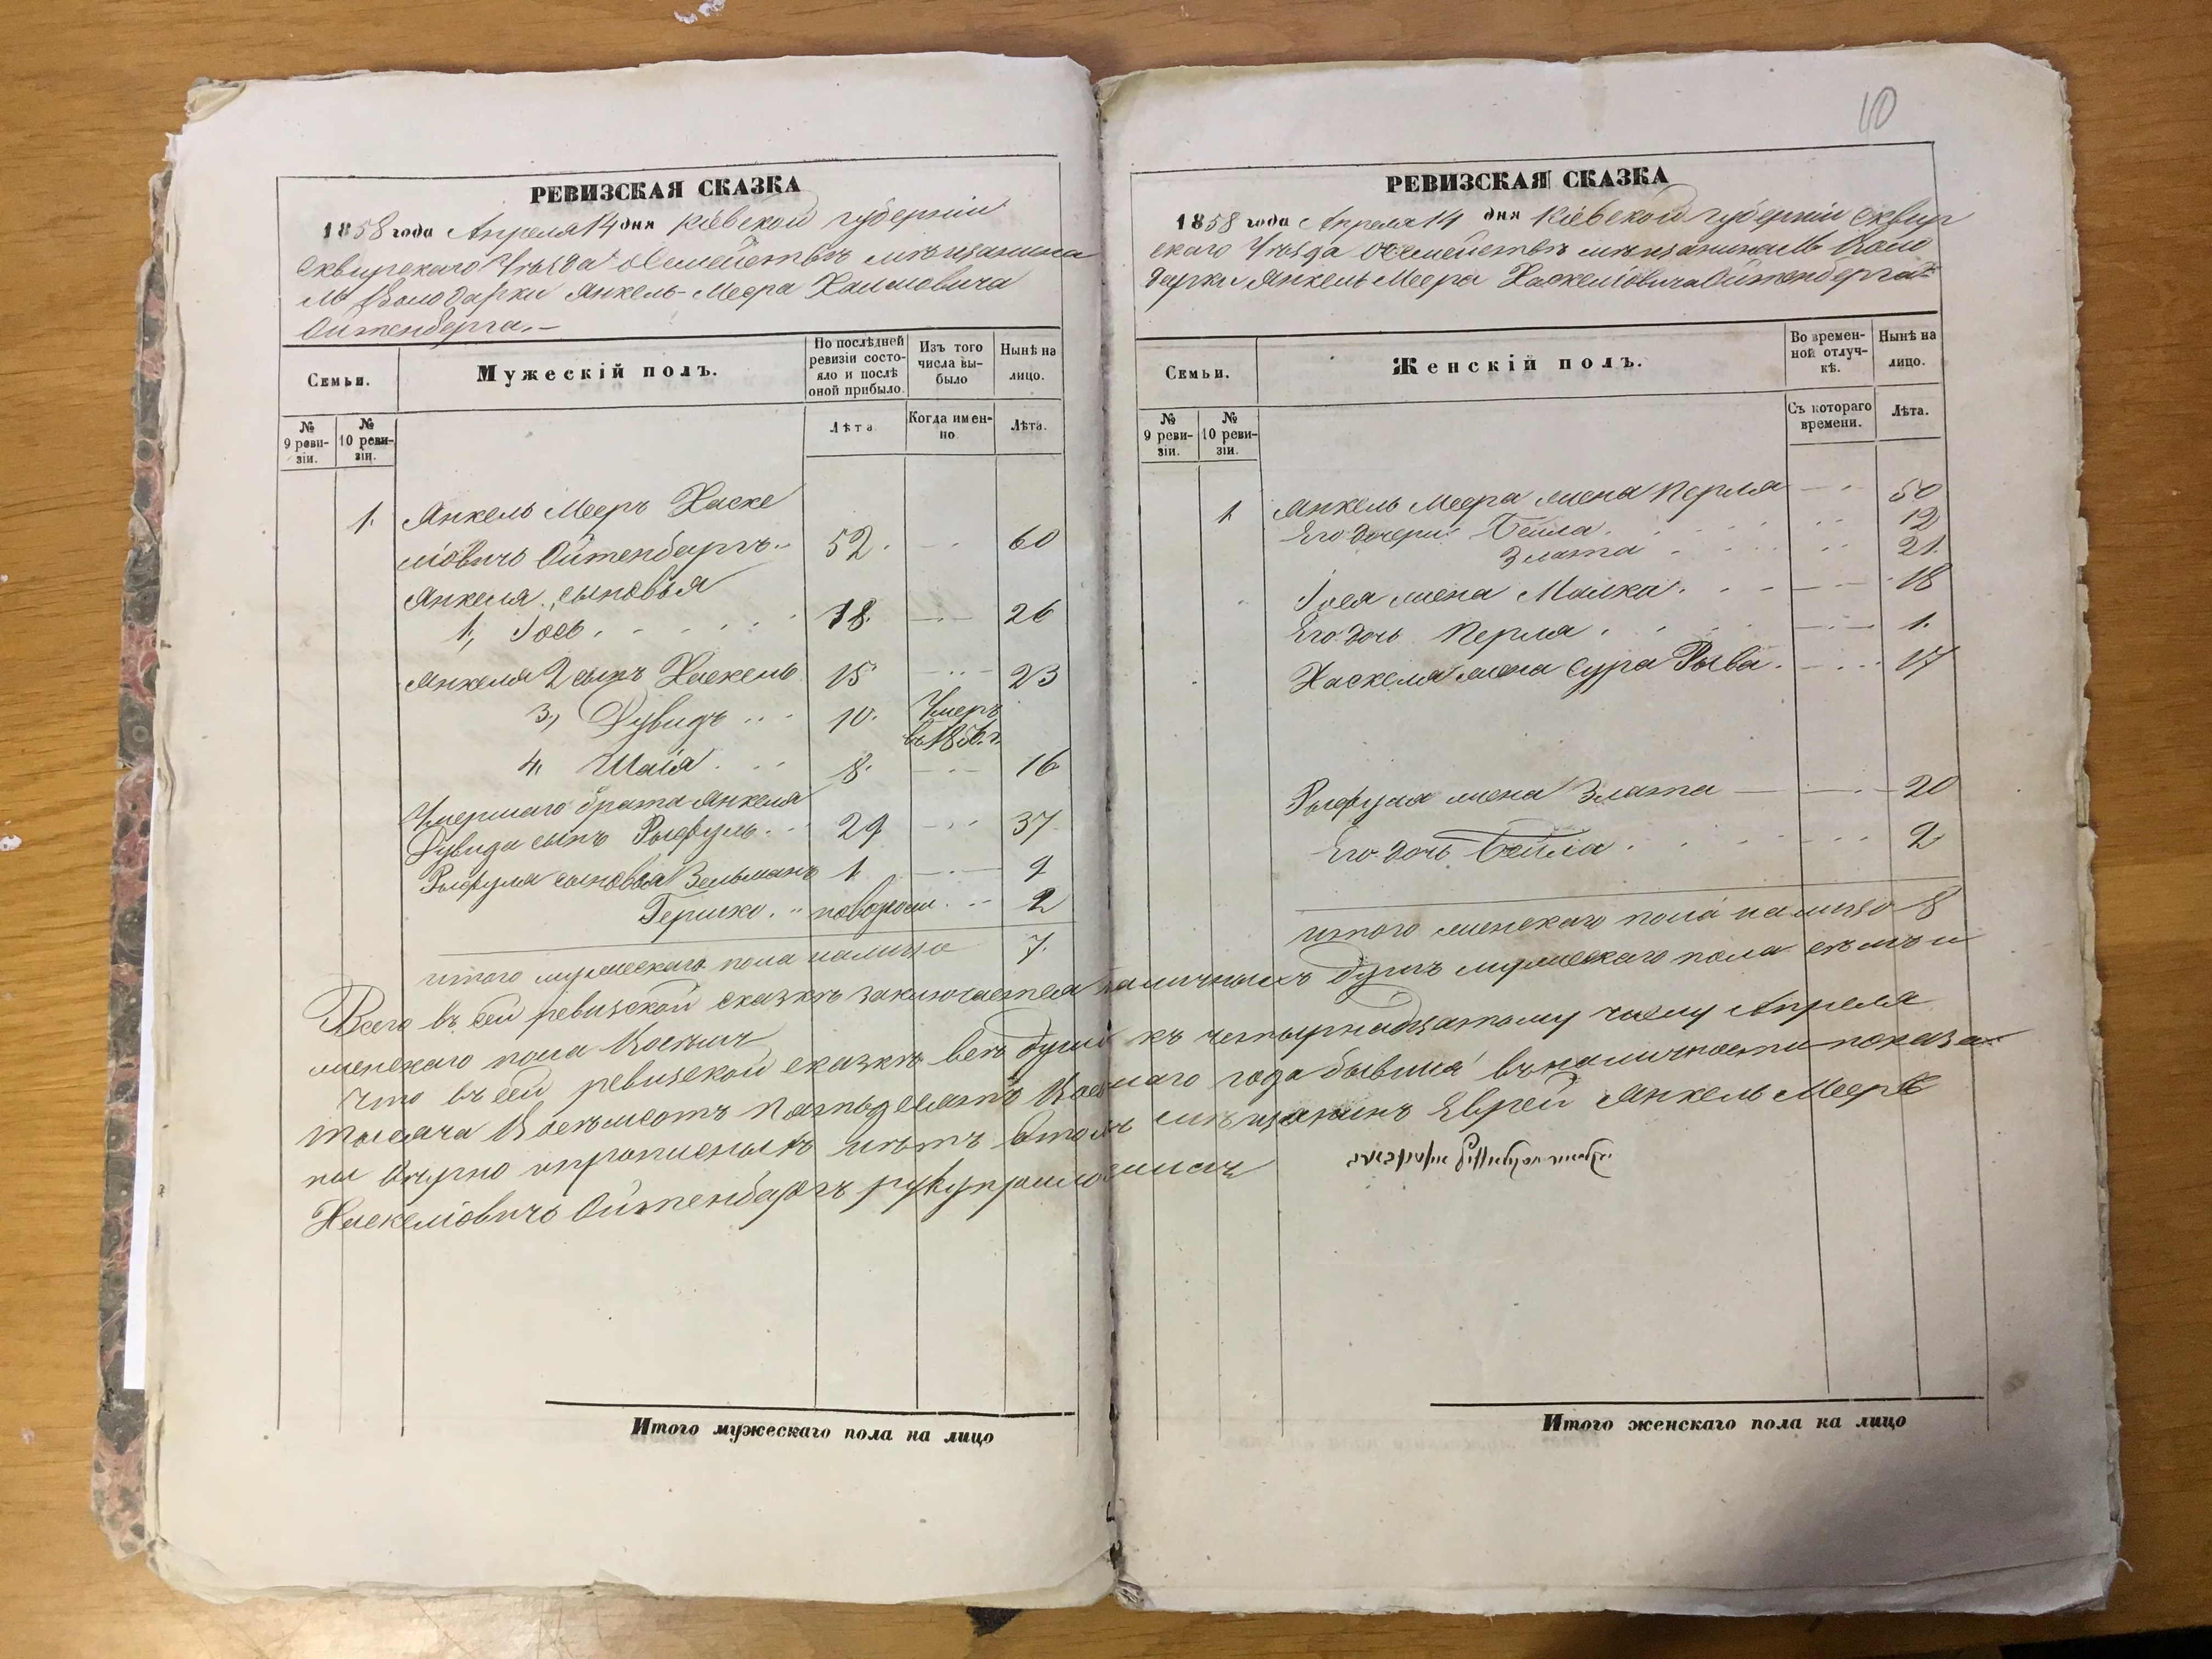 РЕВИЗСКАЯ СКАЗКА
1858 года Апреля 14 дня Кіевской губерніи
Сквирскаго Уѣзда о Семействѣ мѣщанина
М Володарки Янкель-Меера Хаимовича
Ойтенберга.-
Семьи.
Мужескій полъ.
По послѣдней
ревизіи состо-
яло и послѣ
оной прибыло.
Изъ того
числа вы-
было
Нынѣ на
лицо.
№
9 реви-
зіи.
№
10 реви-
зіи.
Лѣта
Когда имен-
но
Лѣта.
1. Янкель Мееръ Хаске
ліовичъ Ойтенбергъ.- 52. 60
Янкеля сыновья
1, Іось. 18. 26
Янкеля 2 сынъ Хаскель 15 23
3, Дувидъ 10. Умеръ
въ 1856. г.
4, Шаія 8. 16
Умершаго брата Янкеля
Дувида сынъ Рыфулъ 29 37
Рыфула сыновья Зельманъ 1. 9
Гершко. новорож. 2
итого мужескаго пола налицо 7.
10
РЕВИЗСКАЯ СКАЗКА
1858 года Апреля 14 дня Кіевской губерніи Сквир
скаго Уѣзда о Семействѣ мѣщанина М Воло
дарки Янкель Меера Хаскеліовича Ойтенберга
Семьи.
Женскій полъ.
Во времен-
ной отлуч-
кѣ.
Нынѣ на
лицо.
№
9 реви-
зіи.
№
10 реви-
зіи.
Съ котораго
времени.
Лѣта.
1 Янкель Меера жена Перля 50
Его дочери: Бейла 12
Злата 21.
Іося жена Малка. 18
Его дочь Перля 1.
Хаскеля жена Сура Рыва. 17
Рыфула жена Злата 20
Его дочь Бейла 2
итого женскаго пола налицо 8
Всего въ сей ревизской сказкѣ заключается наличныхъ душъ мужескаго пола семь и
женскаго пола Восемь
Что въ сей ревизской сказкѣ всѣ души къ четырнадцатому числу Апреля
тысяча Восемьсотъ Пятьдесятъ Восьмаго года бывшія въ наличности показа
ны и прописныхъ нѣтъ въ томъ мѣщанинъ Еврей Янкель Мееръ
Хаскеліовичъ Ойтенбергъ руку приложилъ
Итого мужескаго пола на лицо
Итого женскаго пола на лицо